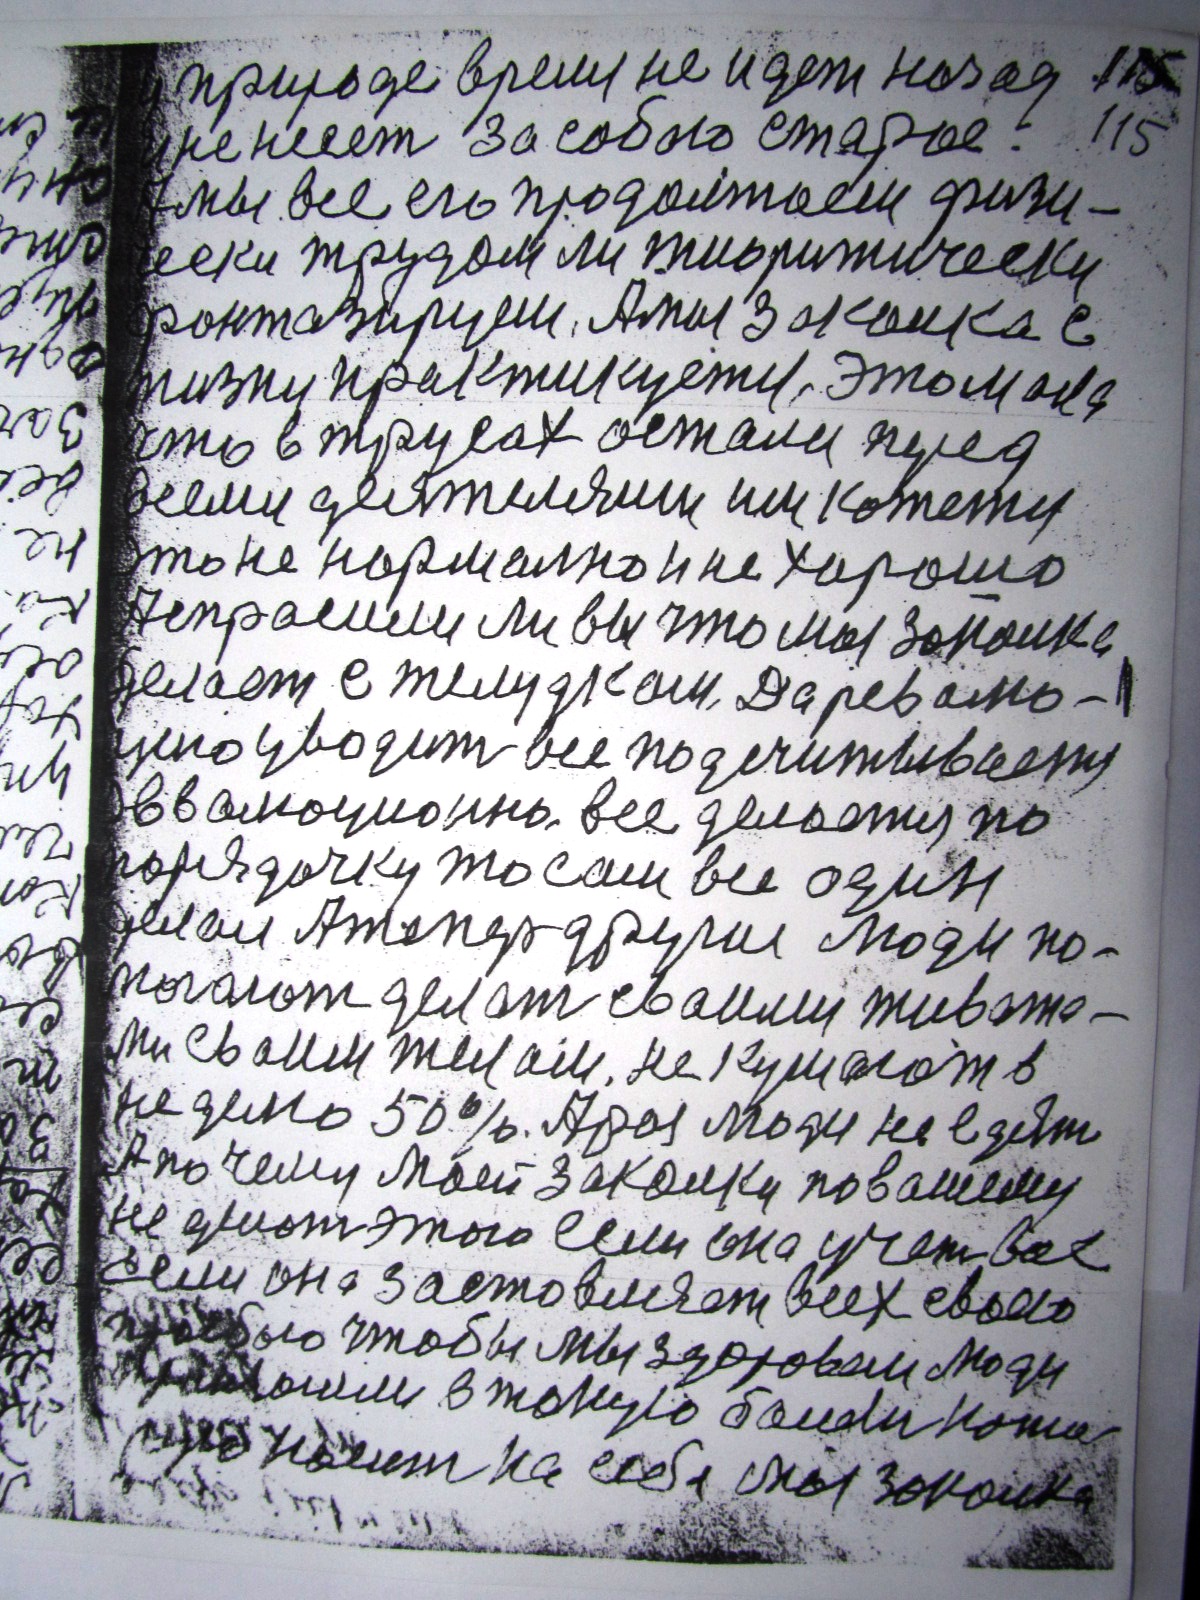 у природе время не идет назад 115
и не несет за собою старое. 115
А мы все его продолжаем физи-
чески трудом ли тиоритически
фонтазируем. А моя закалка с
жизни практикуется. Это мало
что в трусах остали перед
всеми деятелями им кажется
это не нормално и не хорошо
А спрасили ли вы что моя закалка
делает с желудком. Да револю-
цию уводит все подсчитывается
эвволюционно. все делается по
порядочку то сам все один
делал А теперь другие люди по-
могают делат своими живота-
ми своим телом. не кушают в
неделю 50%. А раз люди не едят
А почему моей закалки по вашему
не дают этого Если она учет вас
если она заставляет всех своею
прозбою чтобы мы здороваи люди
в такую болезн кота
рую носит на себе моя закалка